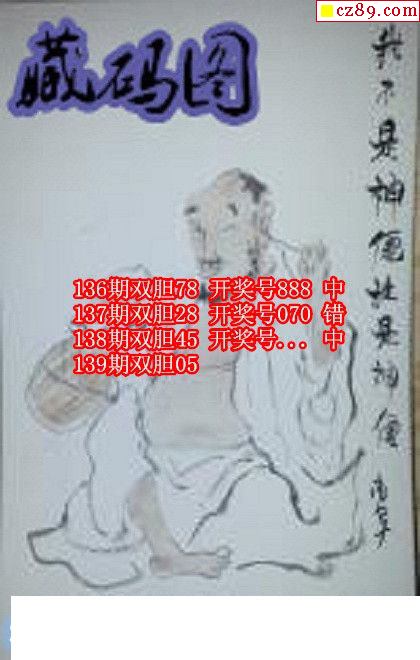 cz89.com
藏码图
我不是神仙
136期双胆78 开奖号888 中
137期双胆28 开奖号070 错
138期双胆45 开奖号... 中
139期双胆05